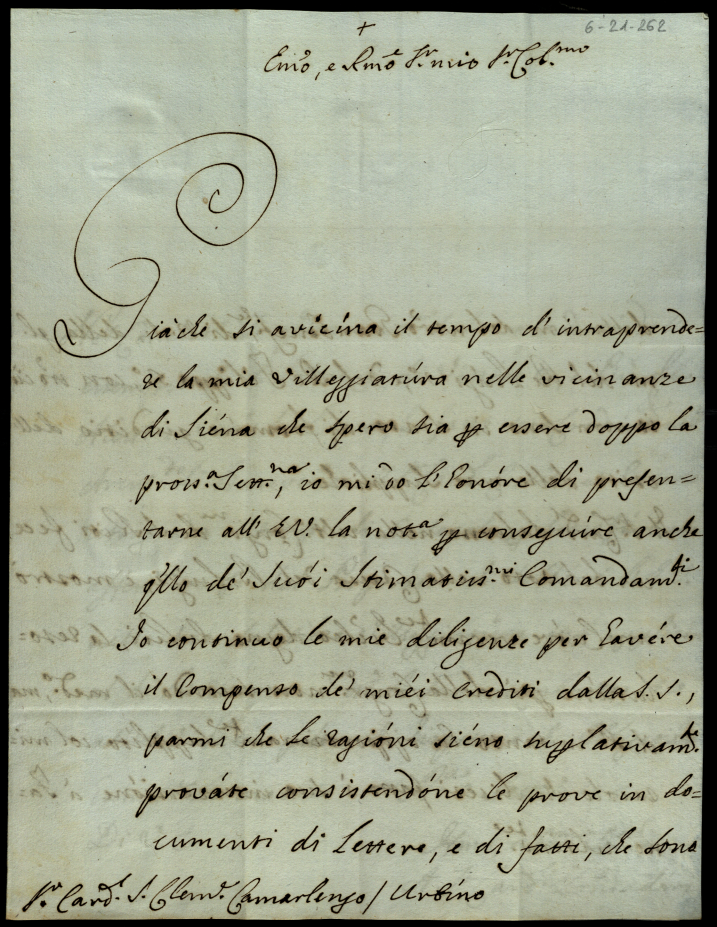 6-21-262
+
Em.o, e Rmo Sr. mio Sr. Col.mo
Giàche si avicína il tempo d'intraprende=
re la mia Villeggiatúra nelle vicinanze
di Siéna che spero sia p essere doppo la
pross.a Sett.na, io mi dò l'Eonóre di presen=
tarne all' E.V. la not.a p conseguíre anche
qllo de' Suói Stimatiss.mi Comandam.ti
Io continuo le mie diligenze per Eavére
il Compenso de' miéi Crediti dalla S. S.,
parmi che le ragióni siéno suplativam.te
prováte consistendóne le prove in do=
cumenti di Lettere, e di fatti, che sono
Sr. Card.l S. Clem.te Camarlengo / Urbíno